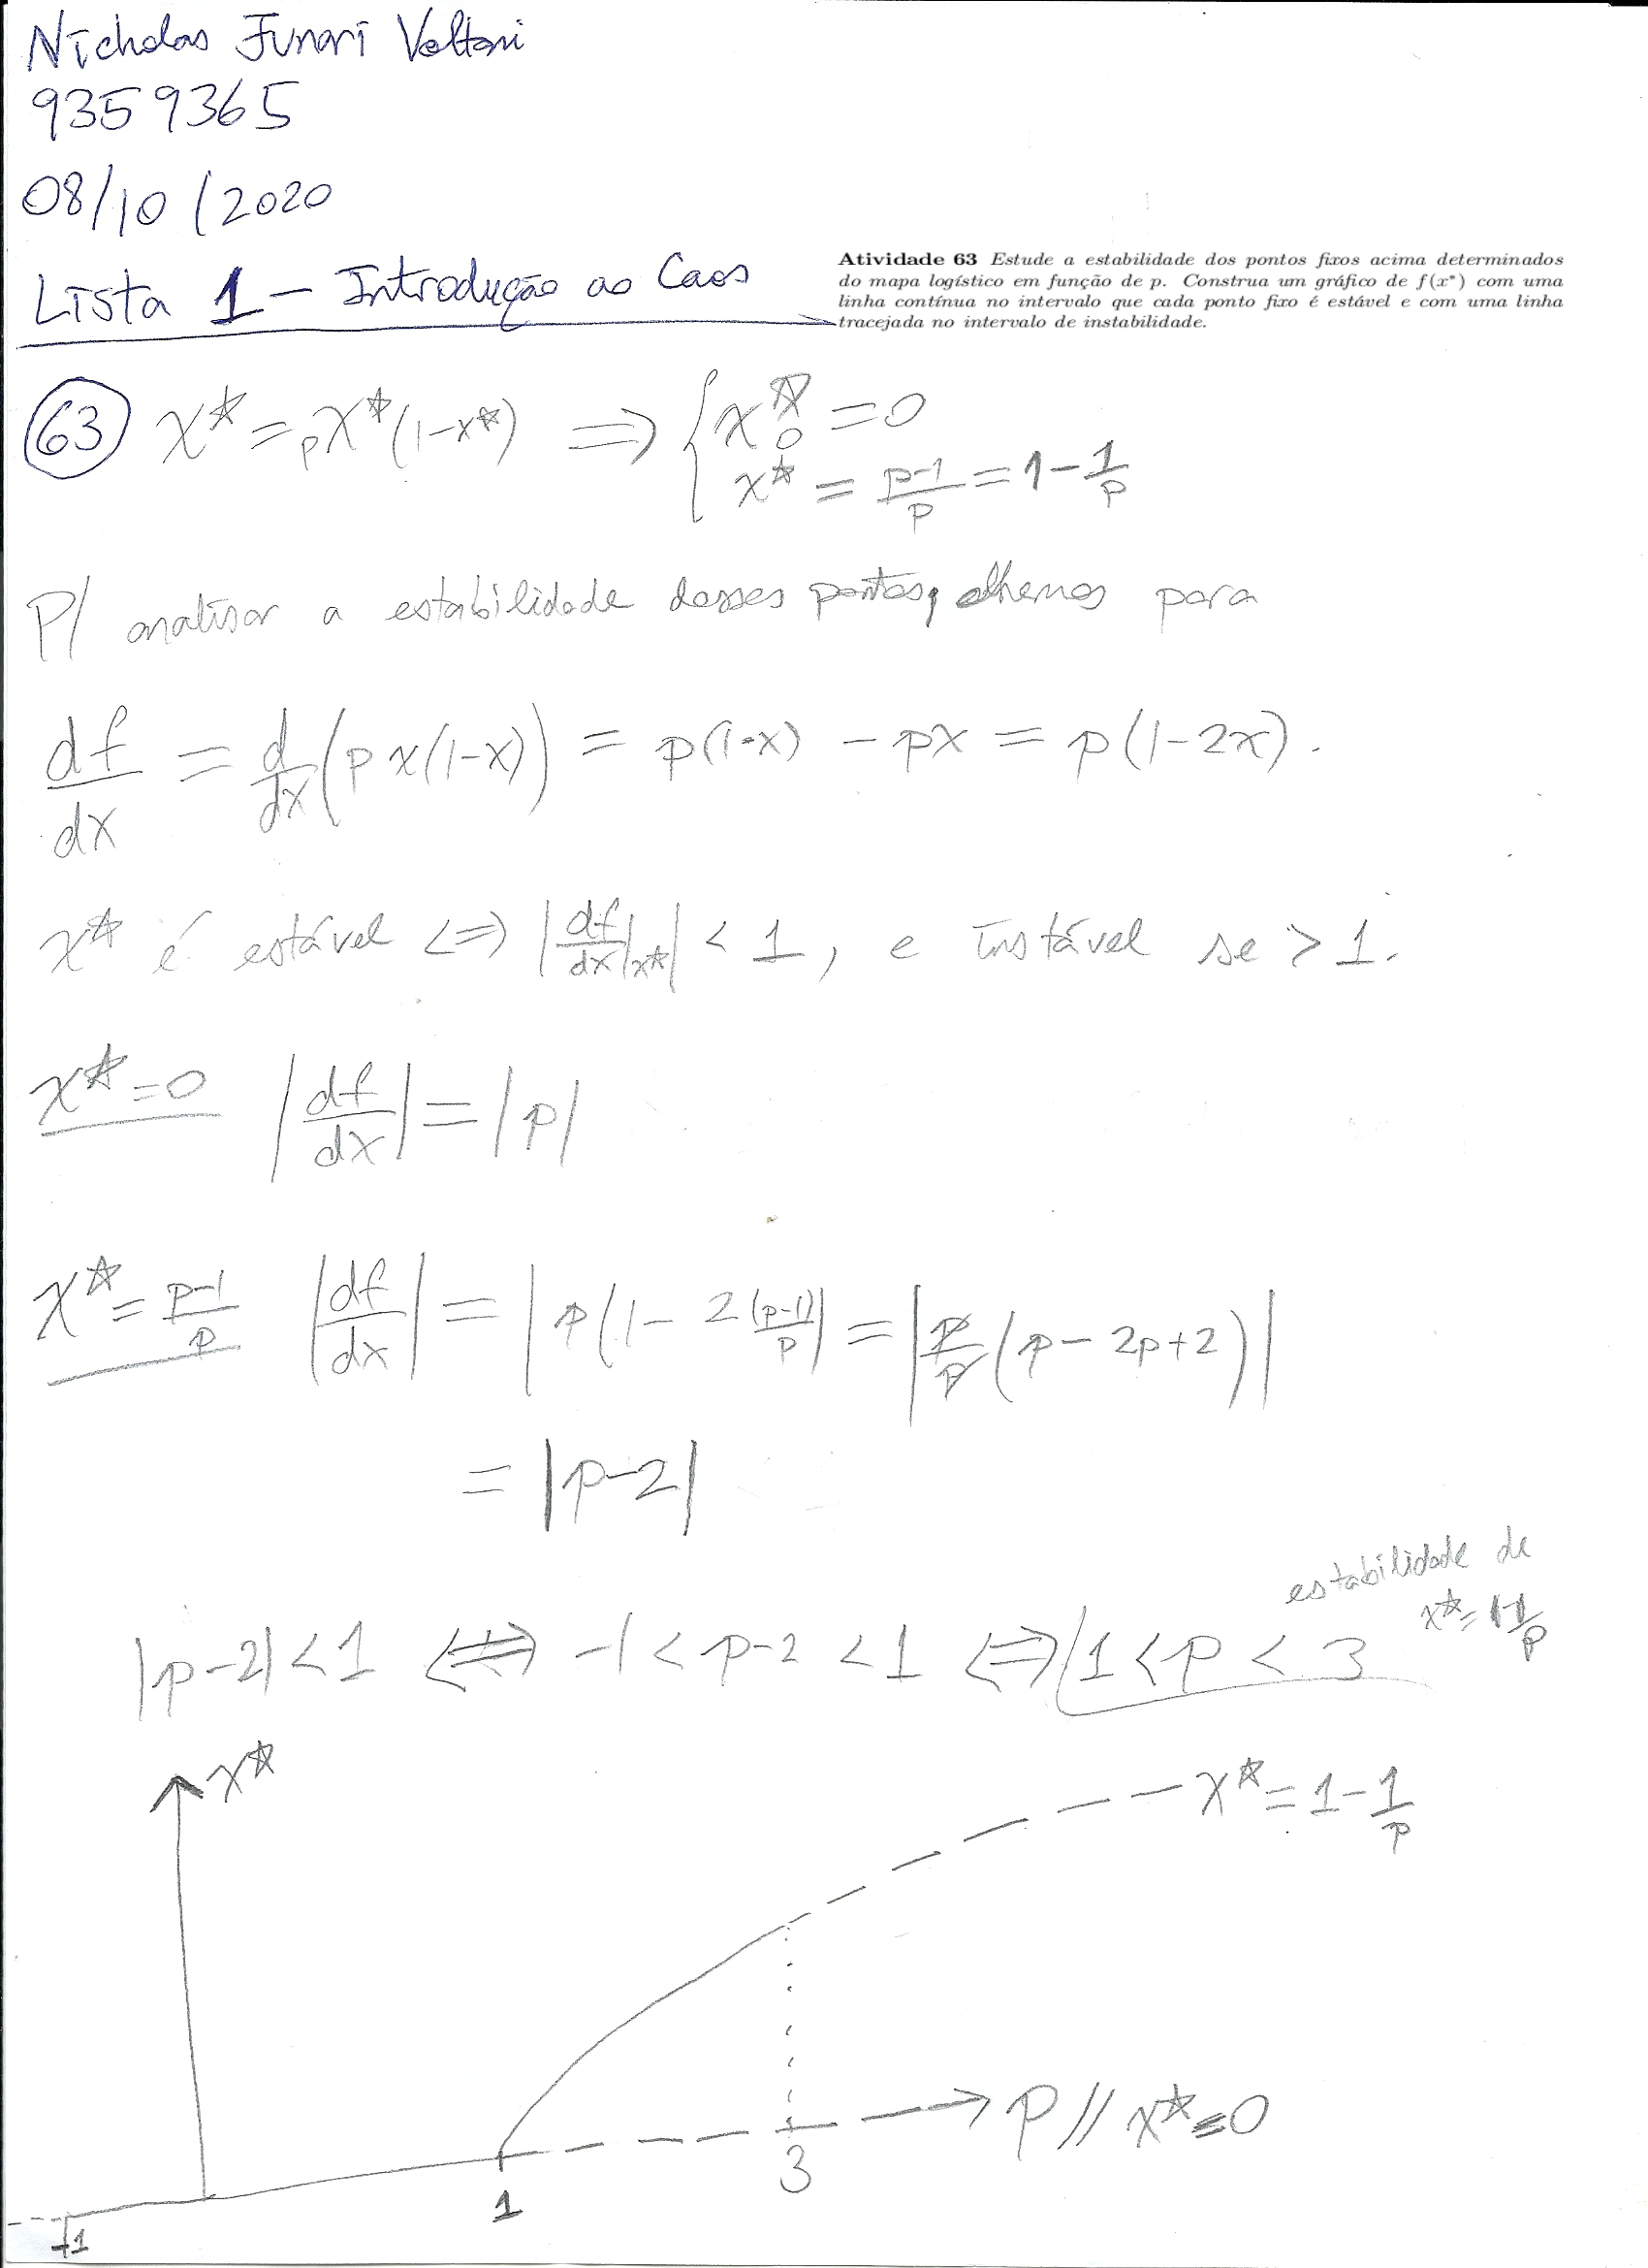 Nicholas Funari Voltani
9359365
08/10/2020
Lista 1 - Introdução ao Caos
Atividade 63 Estude a estabilidade dos pontos fixos acima determinados
do mapa logístico em função de p. Construa um gráfico de f(x*) com uma
linha contínua no intervalo que cada ponto fixo é estável e com uma linha
tracejada no intervalo de instabilidade.
63 x* = px*(1-x*) ⇒ { x*₀ = 0
x* = (p-1)/p = 1 - 1/p
P/ analisar a estabilidade desses pontos, olhemos para
df/dx = d/dx (p x(1-x)) = p(1-x) - px = p(1-2x).
x* é estável ⇔ |df/dx|x*| < 1, e instável se > 1.
x* = 0 |df/dx| = |p|
x* = (p-1)/p |df/dx| = |p(1 - 2(p-1)/p| = |p/p (p - 2p + 2)|
= |p-2|
estabilidade de
x* = 1-1/p
|p-2| < 1 ⇔ -1 < p-2 < 1 ⇔ 1 < p < 3
x*
x* = 1 - 1/p
p // x* = 0
3
1
-1